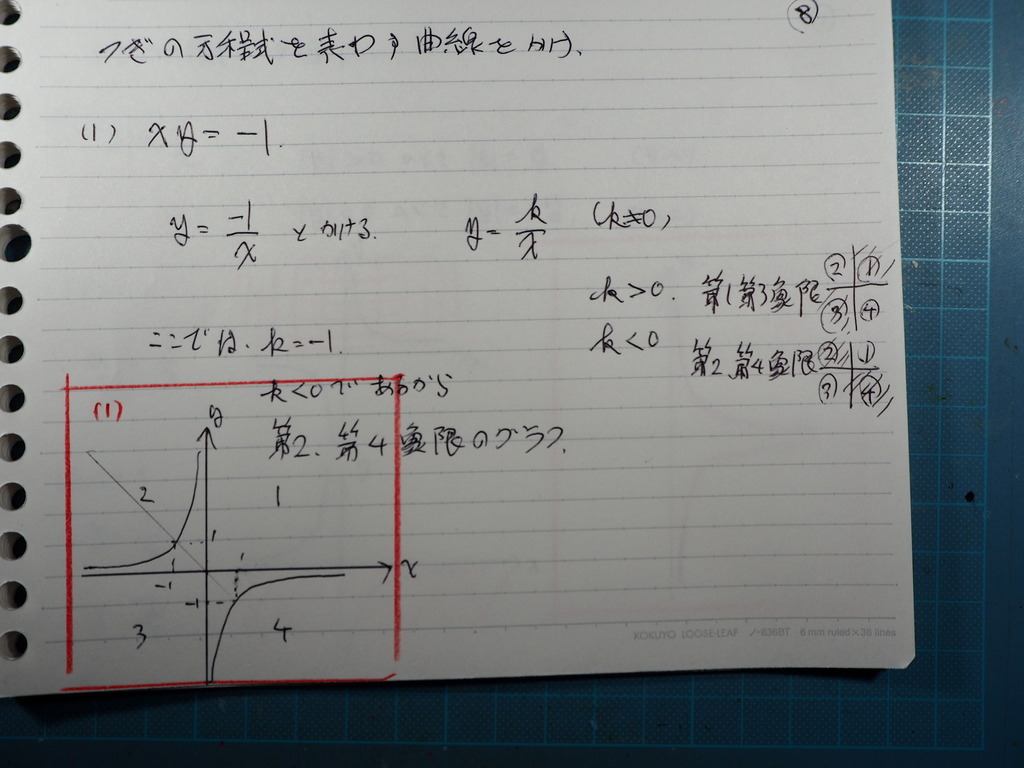 ⑧
つぎの方程式を表わす曲線をかけ.
(1) xy = -1.
y = -1/x とかける. y = k/x (k≠0)
k > 0. 第1第3象限 ② ① ③ ④
ここでは. k = -1. k < 0 第2.第4象限 ② ① ③ ④
k < 0 であるから
(1) y
第2. 第4象限のグラフ.
2 1
1
1
-1
x
-1
3 4
KOKUYO LOOSE-LEAF ノ-836BT 6 mm ruled×36 lines